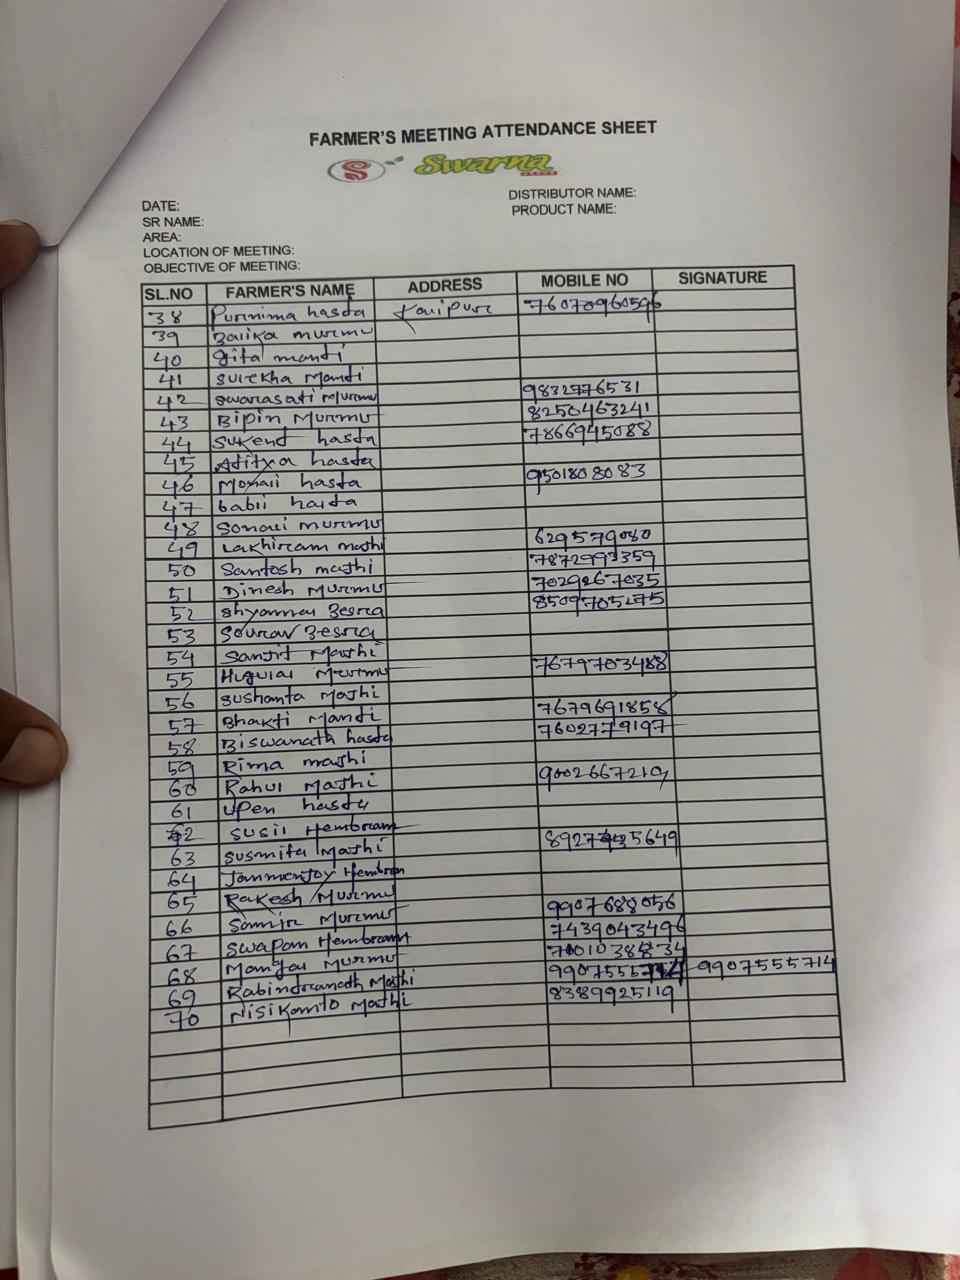 FARMER'S MEETING ATTENDANCE SHEET
S Swarna
DATE: DISTRIBUTOR NAME:
SR NAME: PRODUCT NAME:
AREA:
LOCATION OF MEETING:
OBJECTIVE OF MEETING:
SL.NO FARMER'S NAME ADDRESS MOBILE NO SIGNATURE
38 Purnima hasda 76070960596
39 Balika murmu
40 gita mandi
41 surekha Mandi
42 swarasati Murmu 9832776531
43 Bipin Murmu 8250463241
44 Sukend hasda 7866945088
45 Aditya hasda
46 hasda 9501808083
47 babli hasda
48 Sonali murmu
49 Lakhiram mashi 6291579080
50 Santosh mashi 7872993359
51 Dinesh Murmu 7029267035
52 Shyamal Besra 8509705275
53 Sourav Besra
54 Sanjit Mashi
55 Murmu 7679703488
56 Sushanta Mashi
57 Bhakti Mandi 7679691858
58 Biswanath hasda 7602779197
59 Rima mashi
60 Rahul Mashi 9002667219
61 Upen hasda
62 Susil Hembram
63 Susmita Mashi 5649
64 Janmenjoy Hembram
65 Rakesh Murmu
66 Samir Murmu 9907688056
67 Swapan Hembram 7439043496
68 Mangal Murmu 7001038834
69 Rabindranath Mashi 9907555714 9907555714
70 Nisikanto Mashi 8389925119